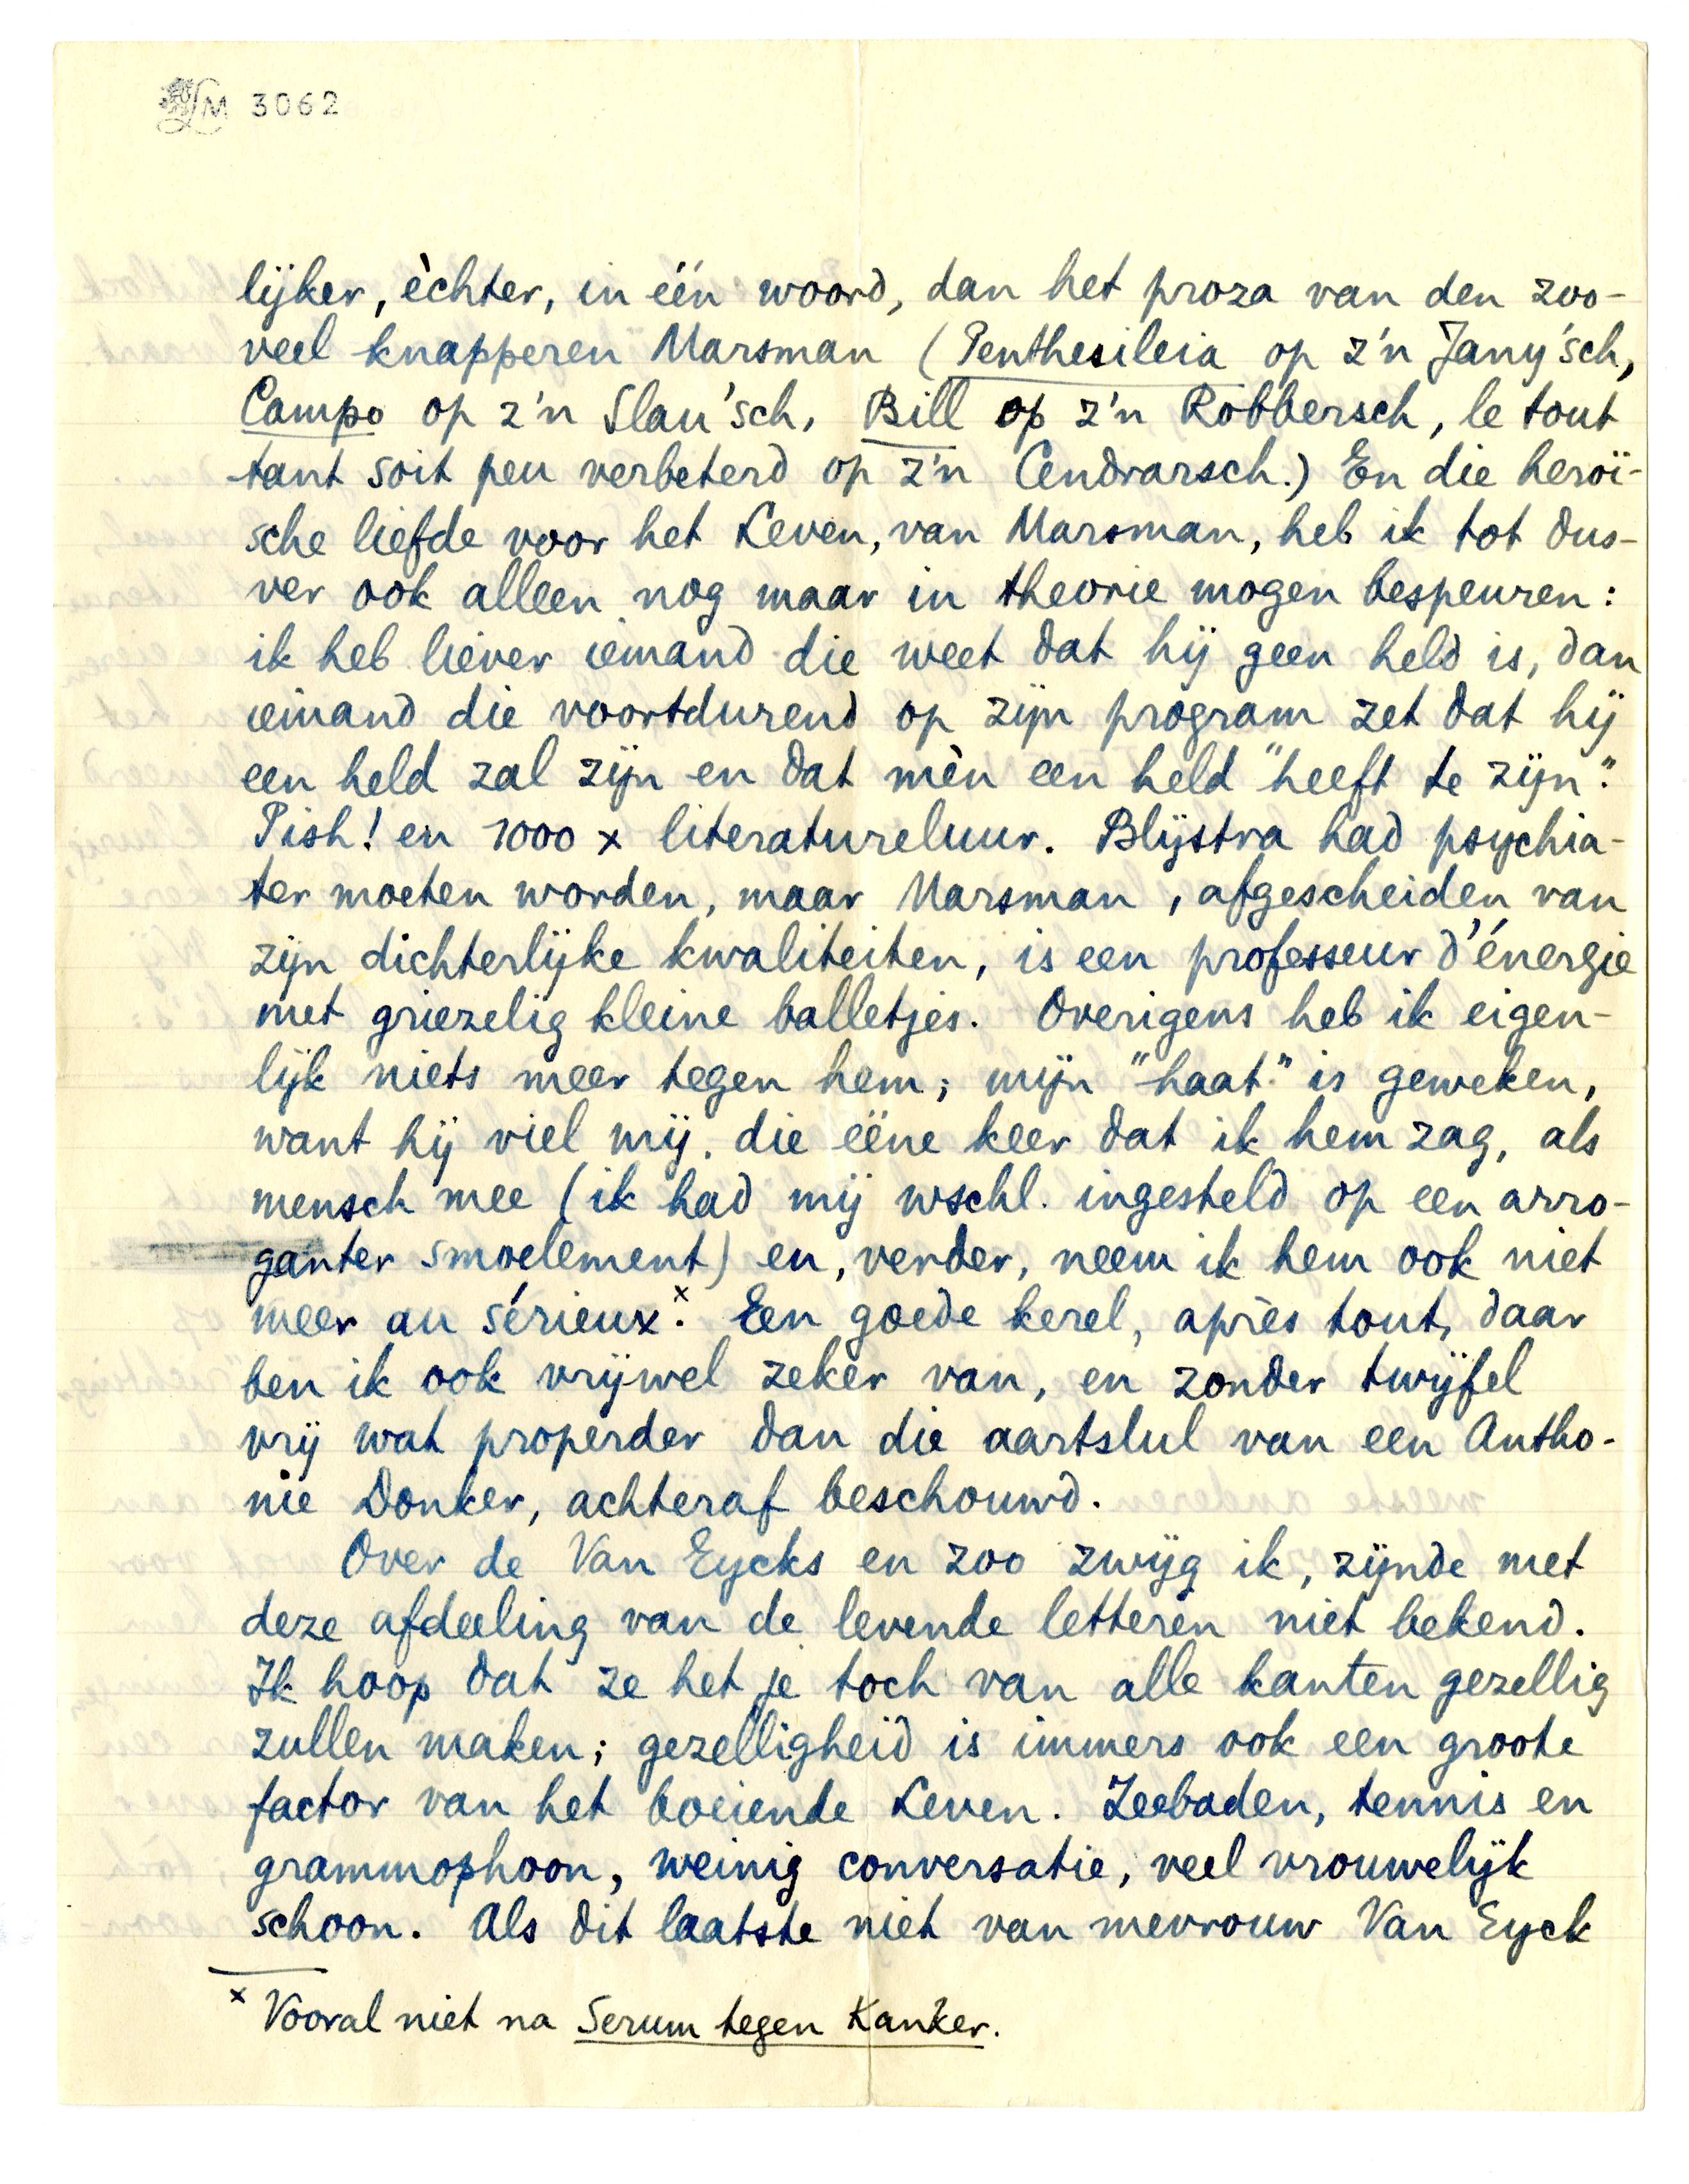 LM 3062
lijker, èchter, in één woord, dan het proza van den zoo-
veel knapperen Marsman (Penthesileia op z'n Jany'sch,
Campo op z'n Slau'sch, Bill op z'n Robbersch, le tout
tant soit peu verbeterd op z'n Cendrarsch.) En die heroï-
sche liefde voor het Leven, van Marsman, heb ik tot dus-
ver ook alleen nog maar in theorie mogen bespeuren:
ik heb liever iemand die weet dat hij geen held is, dan
iemand die voortdurend op zijn program zet dat hij
een held zal zijn en dat mèn een held "heeft te zijn".
Pish! en 1000 x literatureluur. Blijstra had psychia-
ter moeten worden, maar Marsman, afgescheiden van
zijn dichterlijke kwaliteiten, is een professeur d'énergie
met griezelig kleine balletjes. Overigens heb ik eigen-
lijk niets meer tegen hem; mijn "haat" is geweken,
want hij viel mij, die ééne keer dat ik hem zag, als
mensch mee (ik had mij wschl. ingesteld op een arro-
ganter smoelement) en, verder, neem ik hem ook niet
meer au sérieux.x Een goede kerel, après tout, daar
ben ik ook vrijwel zeker van, en zonder twijfel
vrij wat properder dan die aartslul van een Antho-
nie Donker, achteraf beschouwd.
Over de Van Eycks en zoo zwijg ik, zijnde met
deze afdeeling van de levende letteren niet bekend.
Ik hoop dat ze het je toch van alle kanten gezellig
zullen maken; gezelligheid is immers ook een groote
factor van het boeiende Leven. Zeebaden, tennis en
grammophoon, weinig conversatie, veel vrouwelijk
schoon. Als dit laatste niet van mevrouw Van Eyck
x Vooral niet na Serum tegen Kanker.